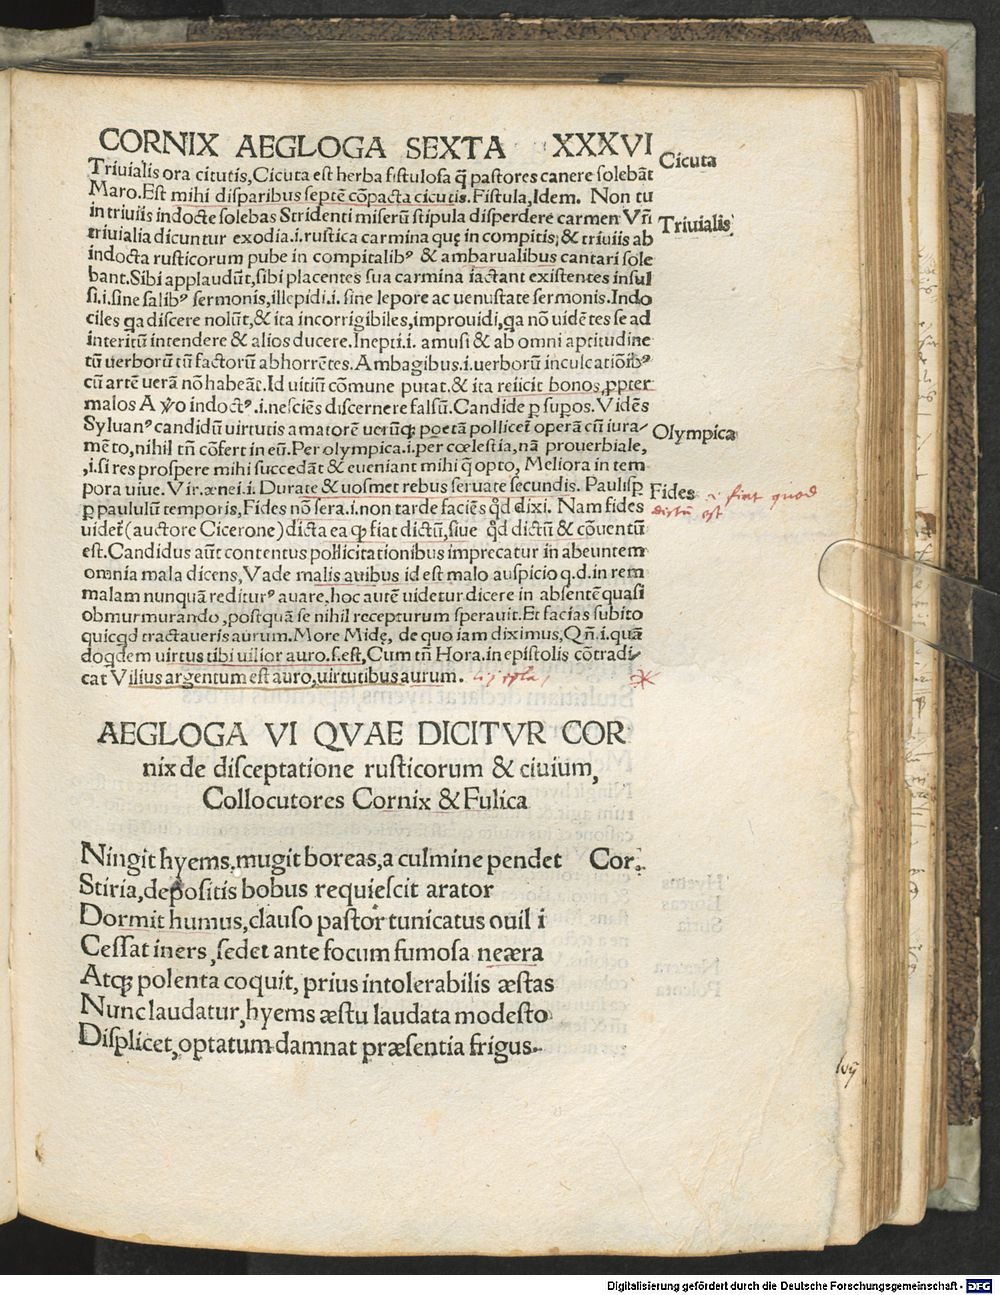 CORNIX AEGLOGA SEXTA XXXVI
Triuialis ora citutis, Cicuta est herba fistulosa q̄ pastores canere solebāt
Cicuta
Maro.Est mihi disparibus septē cōpacta cicutis.Fistula,Idem. Non tu
in triuiis indocte solebas Stridenti miserū stipula disperdere carmen Vn̄
Triuialis
triuialia dicuntur exodia.i.rustica carmina quę in compitis,& triuiis ab
indocta rusticorum pube in compitalibꝰ & ambarualibus cantari sole
bant.Sibi applaudūt,sibi placentes sua carmina iactant existentes insul
si.i.sine salibꝰ sermonis,illepidi.i. sine lepore ac uenustate sermonis.Indo
ciles qa discere nolūt,& ita incorrigibiles,improuidi,qa nō uidētes se ad
interitū intendere & alios ducere.Inepti.i. amusi & ab omni aptitudine
tū uerborū tū factorū abhorrētes.Ambagibus.i.uerborū inculcatiōibꝰ
cū artē uerā nō habeāt.Id uitiū cōmune putat.& ita reiicit bonos,ꝓpter
malos A v̊o indoctꝰ.i.nesciēs discernere falsū.Candide p̱ supos.Vidēs
Syluanꝰ candidū uirtutis amatorē uerūqꝫ poetā pollicet̄ operā cū iura⸗
Olympica
mēto,nihil tn̄ cōfert in eū.Per olympica.i.per cœlestia,nā prouerbiale,
,i.si res prospere mihi succedāt & eueniant mihi q̊ opto, Meliora in tem
pora uiue. Vir.ænei.i. Durate & uosmet rebus seruate secundis. Paulisp̱
p̱ paululū temporis, Fides nō sera.i.non tarde faciēs q̊d dixi. Nam fides
Fides
i fiat quod
dictū est
uidet̄ (auctore Cicerone) dicta ea qp fiat dictū, siue q̊d dictū & cōuentū
est.Candidus aūt contentus pollicitationibus imprecatur in abeuntem
omnia mala dicens, Vade malis auibus id est malo auspicio q.d.in rem
malam nunquā rediturꝰ auare, hoc autē uidetur dicere in absentē quasi
obmurmurando,postquā se nihil recepturum sperauit.Et facias subito
quicqd tractaueris aurum.More Midę, de quo iam diximus, Qn̄.i.quā
doqdem uirtus tibi uilior auro.s.est, Cum tn̄ Hora.in epistolis cōtradi⸗
cat Vilius argentum est auro,uirtutibus aurum.
AEGLOGA VI QVAE DICITVR COR
nix de disceptatione rusticorum & ciuium,
Collocutores Cornix & Fulica
Ningit hyems,mugit boreas,a culmine pendet Cor.
Stiria,depositis bobus requiescit arator
Dormit humus,clauso pastor tunicatus ouil i
Cessat iners, sedet ante focum fumosa neæra
Atqꝫ polenta coquit, prius intolerabilis æstas
Nunc laudatur,hyems æstu laudata modesto
Displicet,optatum damnat præsentia frigus.
Digitalisierung gefördert durch die Deutsche Forschungsgemeinschaft - DFG